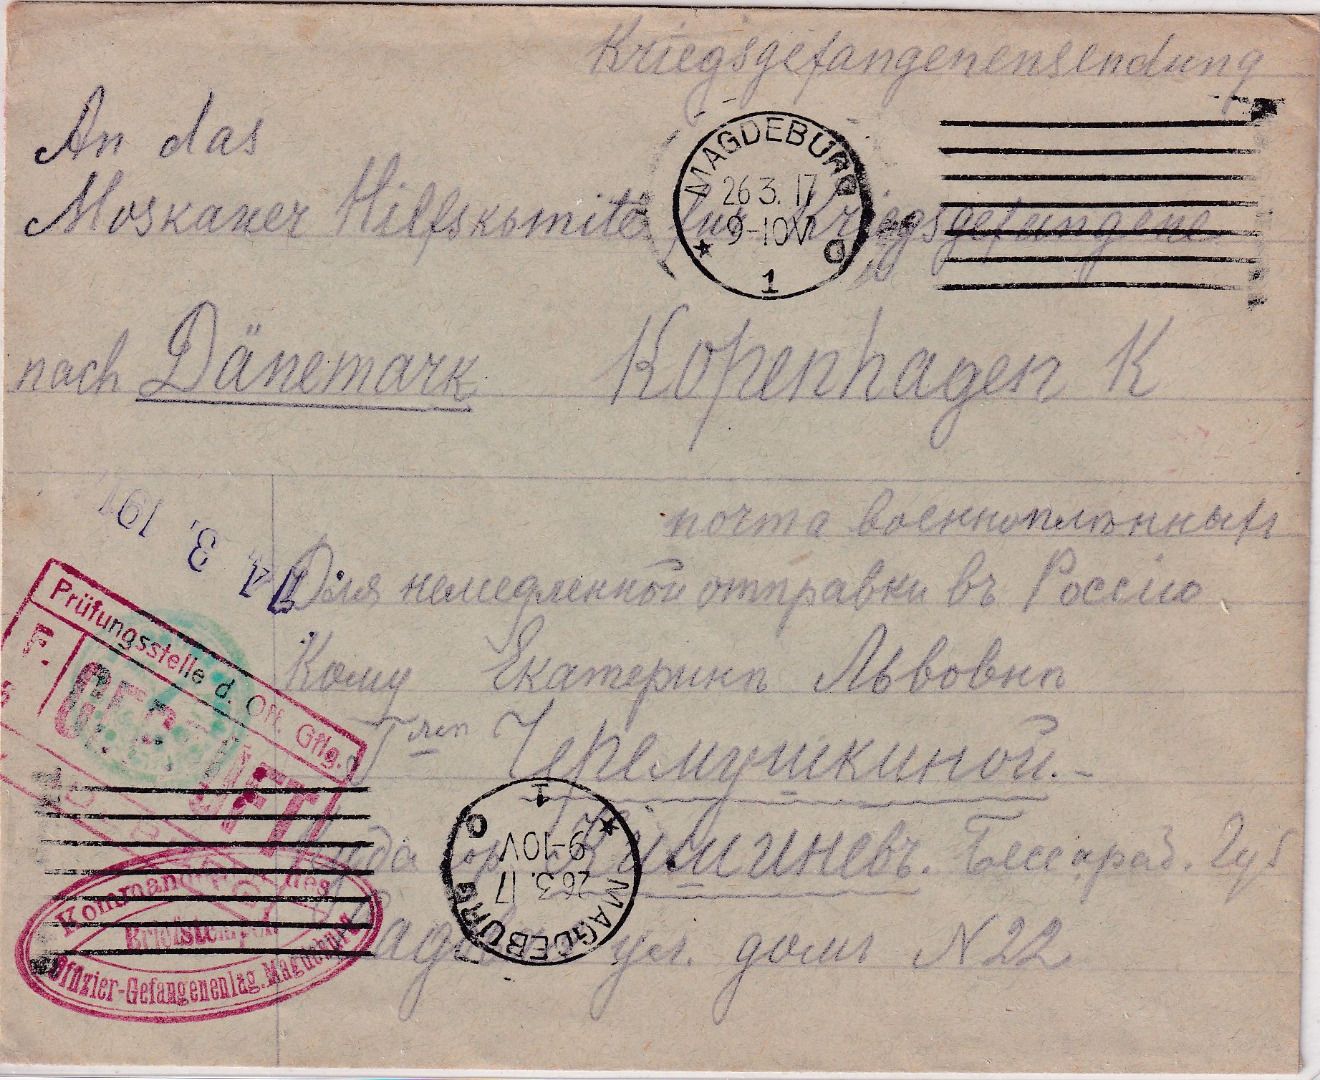 Kriegsgefangenensendung
An das
Moskauer Hilfskomite für Kriegsgefangene
MAGDEBURG
26.3.17
9-10V
1
nach Dänemark Kopenhagen K
почта военнопленныхъ
Для немедленной отправки въ Россiю
Кому Екатеринѣ Львовнѣ
Черемушкиной.
гор. Кишиневъ. Бессараб. Губ
ул. домъ N22
3. 191
Prüfungsstelle d. Off. Gflg.
F.
GEPRÜFT!
MAGDEBURG
26.3.17
9-10V
1
Kommandantur des
Briefstempel
Offizier-Gefangenenlag. Magdeburg